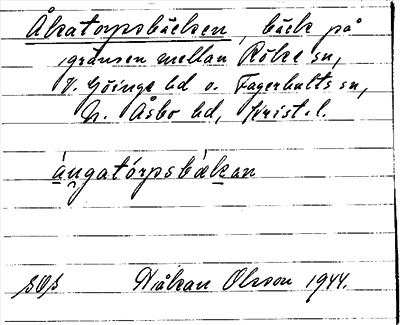 Åkatorpsbäcken, bäck på
gränsen mellan Röke sn,
V. Göinge hd o. Fagerhults sn,
N. Åsbo hd, Krist. l.
ángatórpsbækan
SOS Håkan Olsson 1944.